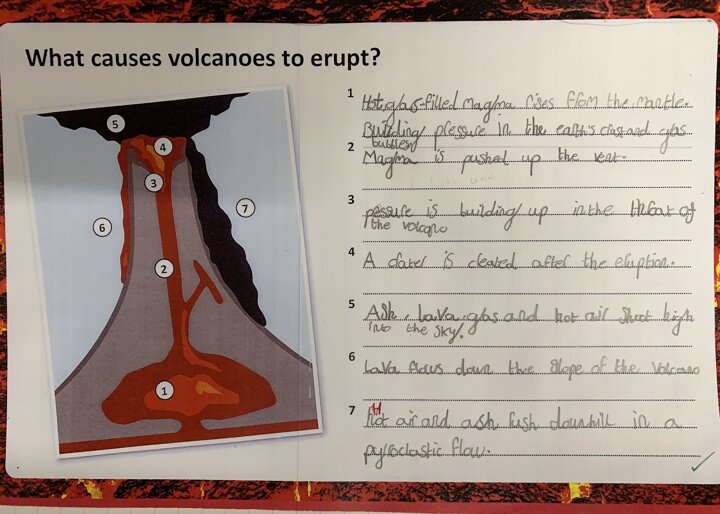 What causes volcanoes to erupt?
1 Hot, gas-filled magma rises from the mantle.
Building pressure in the earth's crust and gas
bubbles,
2 Magma is pushed up the vent.
3 pessure is building up in the throat of
the volcano
4 A crater is cleared after the eruption.
5 Ash, lava, gas and hot air shoot high
into the sky.
6 Lava flows down the slope of the volcano
7 Hot air and ash rush downhill in a
pyroclastic flow.
5
4
3
6
7
2
1